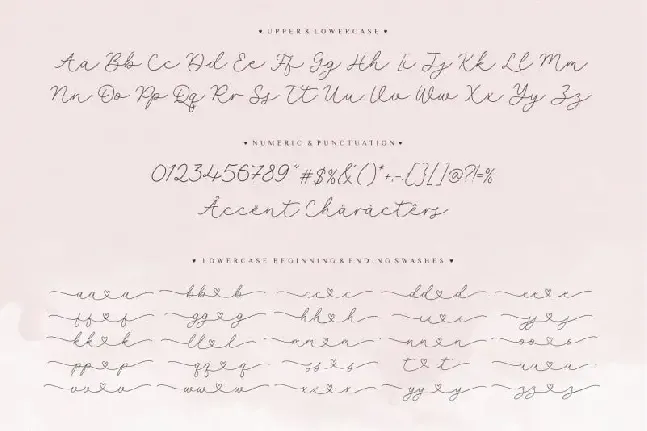 ♥ UPPER & LOWERCASE ♥
Aa Bb Cc Dd Ee Ff Gg Hh Ii Jj Kk Ll Mm
Nn Oo Pp Qq Rr Ss Tt Uu Vv Ww Xx Yy Zz
♥ NUMERIC & PUNCTUATION ♥
0123456789"#$%&'()*+,-{}[]@?!=%
Accent Characters
♥ LOWERCASE BEGINNING & ENDING SWASHES ♥
aa♥a bb♥b cc♥c dd♥d
ff♥f gg♥g hh♥h jj♥j
kk♥k ll♥l nn♥n oo♥o
pp♥p qq♥q t♥t
vv♥v ww♥w xx♥x yy♥y zz♥z